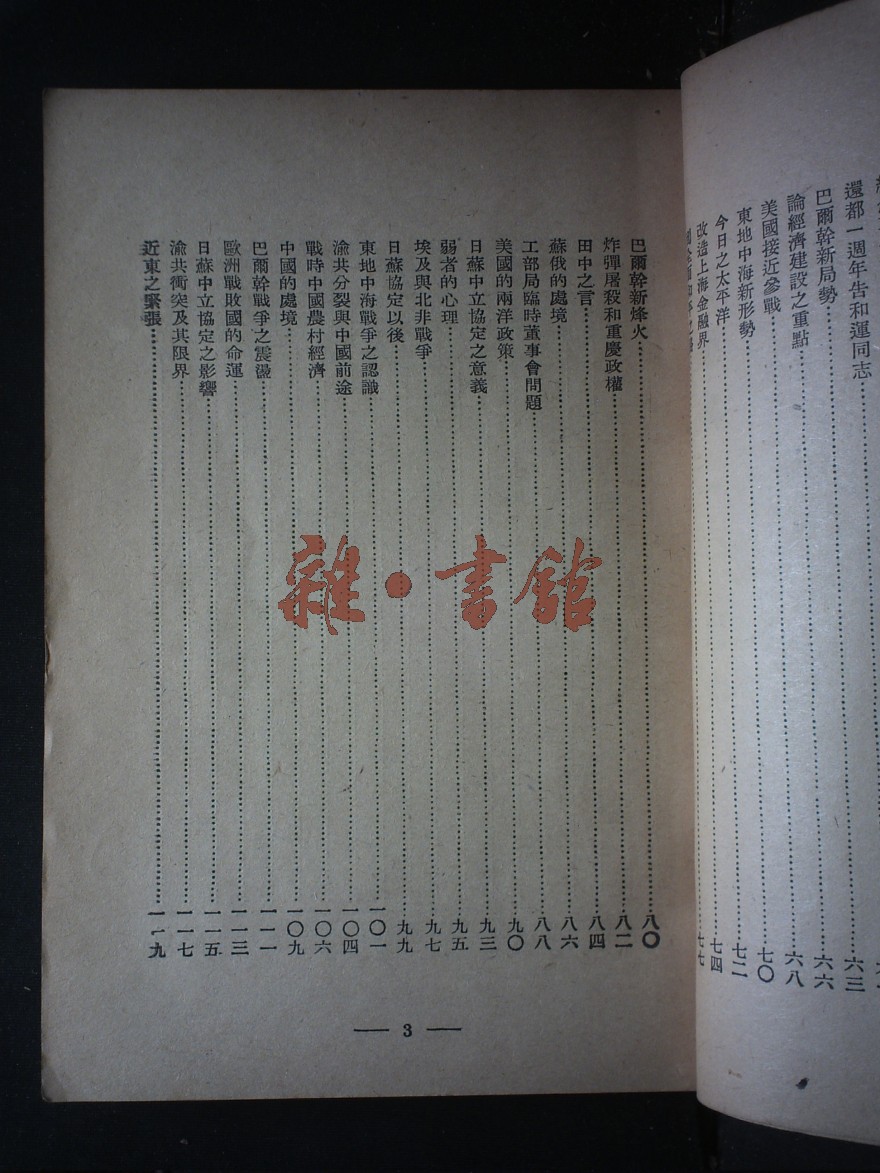 還都一週年告和運同志……六三
巴爾幹新局勢……六六
論經濟建設之重點……六八
美國接近參戰……七〇
東地中海新形勢……七二
今日之太平洋……七四
改造上海金融界……七七
巴爾幹新烽火……八〇
炸彈屠殺和重慶政權……八二
田中之言……八四
蘇俄的處境……八六
工部局臨時董事會問題……八八
美國的兩洋政策……九〇
日蘇中立協定之意義……九三
弱者的心理……九五
埃及與北非戰爭……九七
日蘇協定以後……九九
東地中海戰爭之認識……一〇一
渝共分裂與中國前途……一〇四
戰時中國農村經濟……一〇六
中國的處境……一〇九
巴爾幹戰爭之震盪……一一一
歐洲戰敗國的命運……一一三
日蘇中立協定之影響……一一五
渝共衝突及其限界……一一七
近東之緊張……一一九
— 3 —
雜·書館